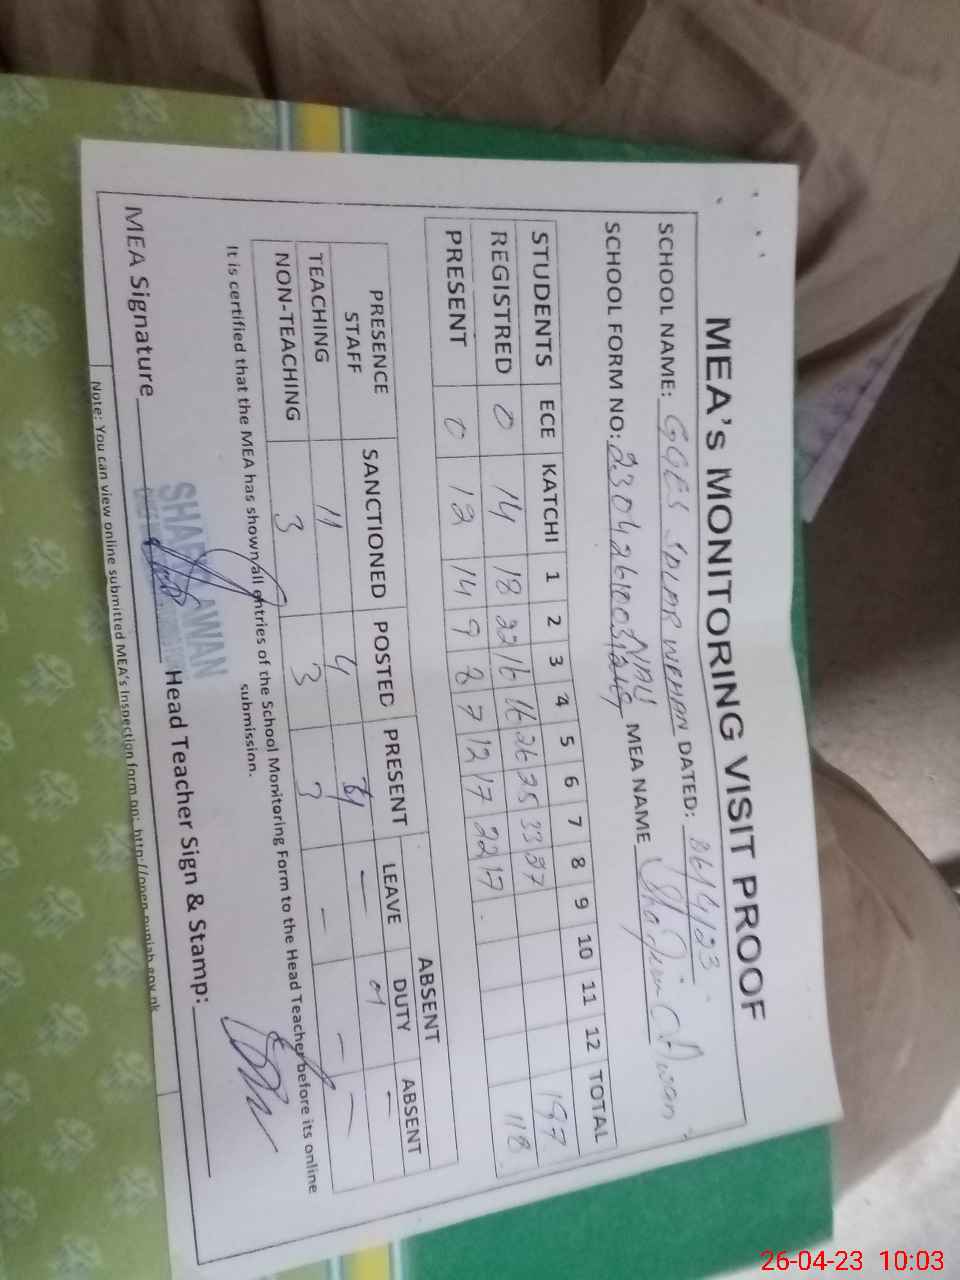 MEA's MONITORING VISIT PROOF
SCHOOL NAME: GGES WAHAN DATED: 26/4/23
SCHOOL FORM NO: MEA NAME Awan
STUDENTS ECE KATCHI 1 2 3 4 5 6 7 8 9 10 11 12 TOTAL
REGISTRED 0 14 18 22 16 16 26 25 33 27 197
PRESENT 0 12 14 9 8 7 12 17 22 17 118
PRESENCE STAFF SANCTIONED POSTED PRESENT ABSENT
LEAVE DUTY ABSENT
TEACHING 11 4 — — —
NON-TEACHING 3 3 3 - — —
It is certified that the MEA has shown all entries of the School Monitoring Form to the Head Teacher before its online
submission.
SHAR AWAN
MEA Signature Head Teacher Sign & Stamp:
Note: You can view online submitted MEA's Inspection form on: http://open.punjab.gov.pk
26-04-23 10:03